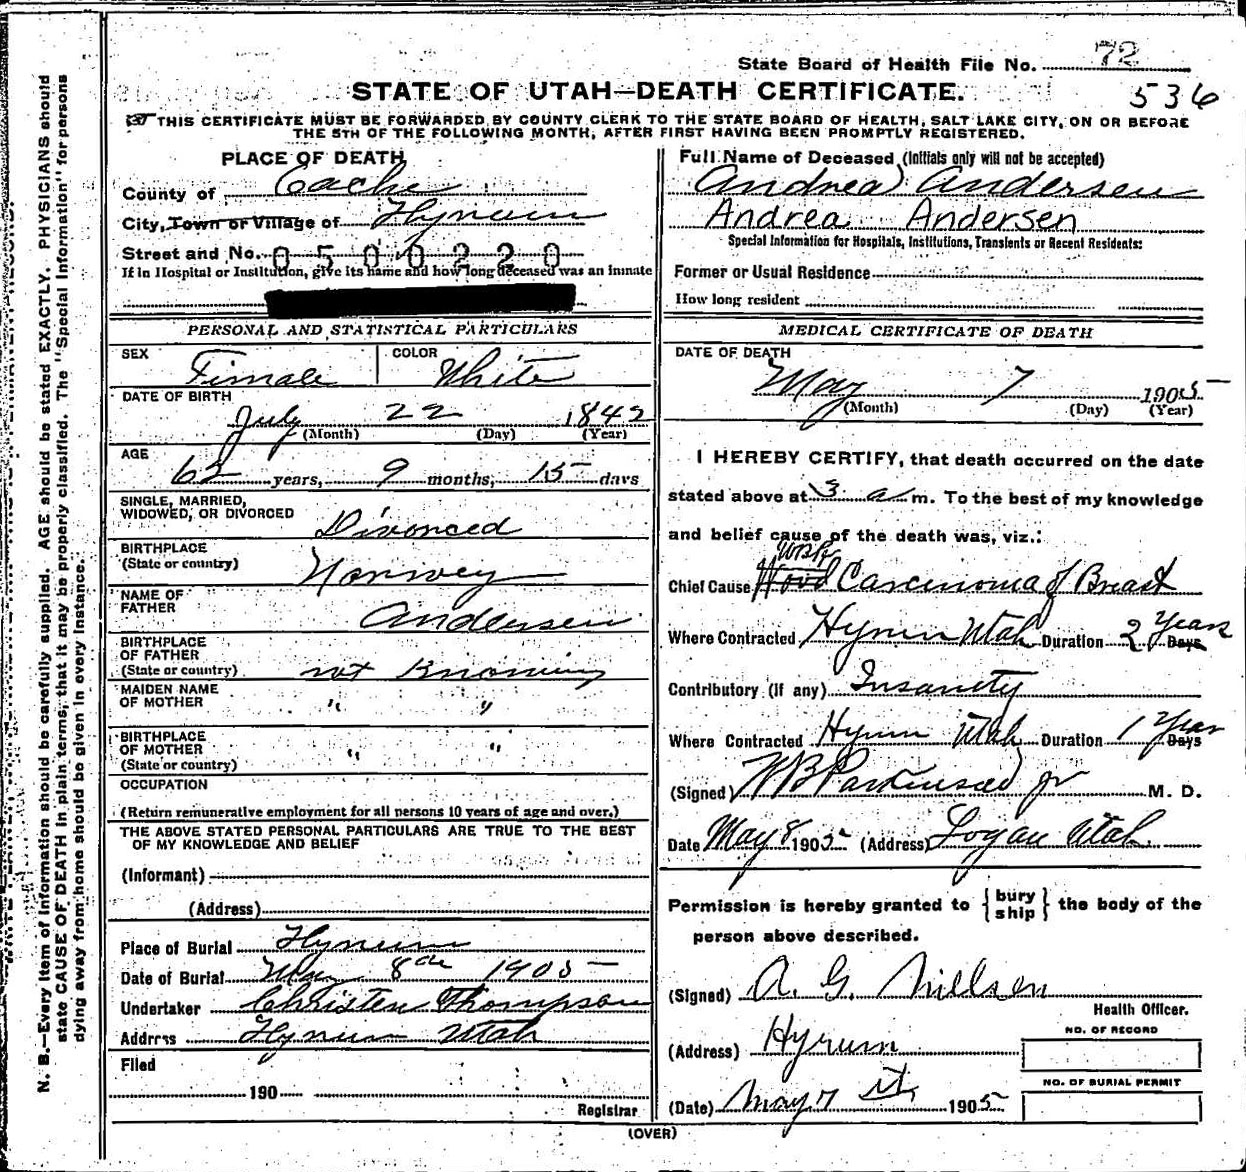 State Board of Health File No. 72
STATE OF UTAH—DEATH CERTIFICATE.
536
THIS CERTIFICATE MUST BE FORWARDED BY COUNTY CLERK TO THE STATE BOARD OF HEALTH, SALT LAKE CITY, ON OR BEFORE
THE 5TH OF THE FOLLOWING MONTH, AFTER FIRST HAVING BEEN PROMPTLY REGISTERED.
N. B.—Every item of information should be carefully supplied. AGE should be stated EXACTLY. PHYSICIANS should
state CAUSE OF DEATH in plain terms, that it may be properly classified. The "Special Information" for persons
dying away from home should be given in every instance.
PLACE OF DEATH
County of Cache
City, Town or Village of Hyrum
Street and No. 0500220
If in Hospital or Institution, give its name and how long deceased was an inmate
PERSONAL AND STATISTICAL PARTICULARS
SEX Female COLOR White
DATE OF BIRTH
July 22 1842
(Month) (Day) (Year)
AGE
62 years, 9 months, 15 days
SINGLE, MARRIED,
WIDOWED, OR DIVORCED Divorced
BIRTHPLACE
(State or country) Norwey
NAME OF
FATHER Andersen
BIRTHPLACE
OF FATHER
(State or country) not Knowing
MAIDEN NAME
OF MOTHER " "
BIRTHPLACE
OF MOTHER
(State or country) " "
OCCUPATION
(Return remunerative employment for all persons 10 years of age and over.)
THE ABOVE STATED PERSONAL PARTICULARS ARE TRUE TO THE BEST
OF MY KNOWLEDGE AND BELIEF
(Informant)
(Address)
Place of Burial Hyrum
Date of Burial May 8th 1905
Undertaker Christen Thompson
Address Hyrum Utah
Filed
190
Registrar
Full Name of Deceased (Initials only will not be accepted)
Andrea Andersen
Andrea Andersen
Special Information for Hospitals, Institutions, Transients or Recent Residents:
Former or Usual Residence
How long resident
MEDICAL CERTIFICATE OF DEATH
DATE OF DEATH
May 7 1905
(Month) (Day) (Year)
I HEREBY CERTIFY, that death occurred on the date
stated above at 3 a m. To the best of my knowledge
and belief cause of the death was, viz.:
WBP
Chief Cause Carcinoma of Breast
Where Contracted Hyrum Utah Duration 2 Years Days
Contributory (if any) Insanity
Where Contracted Hyrum Utah Duration 1 Year Days
(Signed) W B Parkinson Jr M. D.
Date May 8 1905 (Address) Logan Utah
Permission is hereby granted to { bury ship } the body of the
person above described.
(Signed) A. G. Nillsen
Health Officer.
(Address) Hyrum
NO. OF RECORD
NO. OF BURIAL PERMIT
(Date) May 7 th 1905
(OVER)